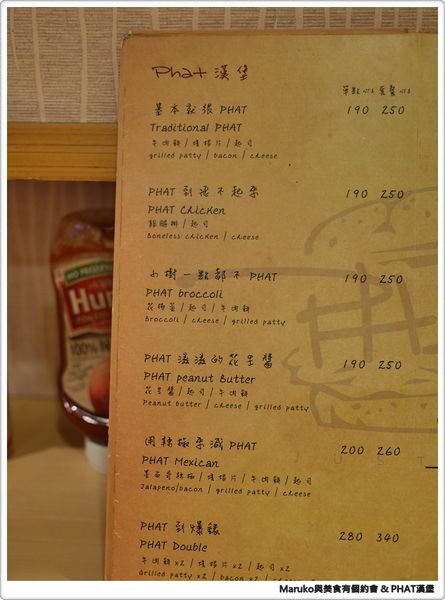 Phat 漢堡
單點NT$ 套餐NT$
基本款張 PHAT 190 250
Traditional PHAT
牛肉餅 / 煙燻片 / 起司
grilled patty / bacon / cheese
PHAT 到撿不起來 190 250
PHAT Chicken
雞腿排 / 起司
Boneless chicken / cheese
小樹一點都不 PHAT 190 250
PHAT broccoli
花椰菜 / 起司 / 牛肉餅
Broccoli / cheese / grilled patty
PHAT 滋滋的花生醬 190 250
PHAT peanut Butter
花生醬 / 起司 / 牛肉餅
Peanut butter / cheese / grilled patty
用辣椒來減 PHAT 200 260
PHAT Mexican
墨西哥辣椒 / 煙燻片 / 牛肉餅 / 起司
Jalapeno/bacon / grilled patty / cheese
PHAT 到爆錶 280 340
PHAT Double
牛肉餅x2 / 煙燻片x2 / 起司x2
Grilled patty x2 / bacon x2 /
NO PRESERV
Hun
100% N
Maruko與美食有個約會 & PHAT漢堡